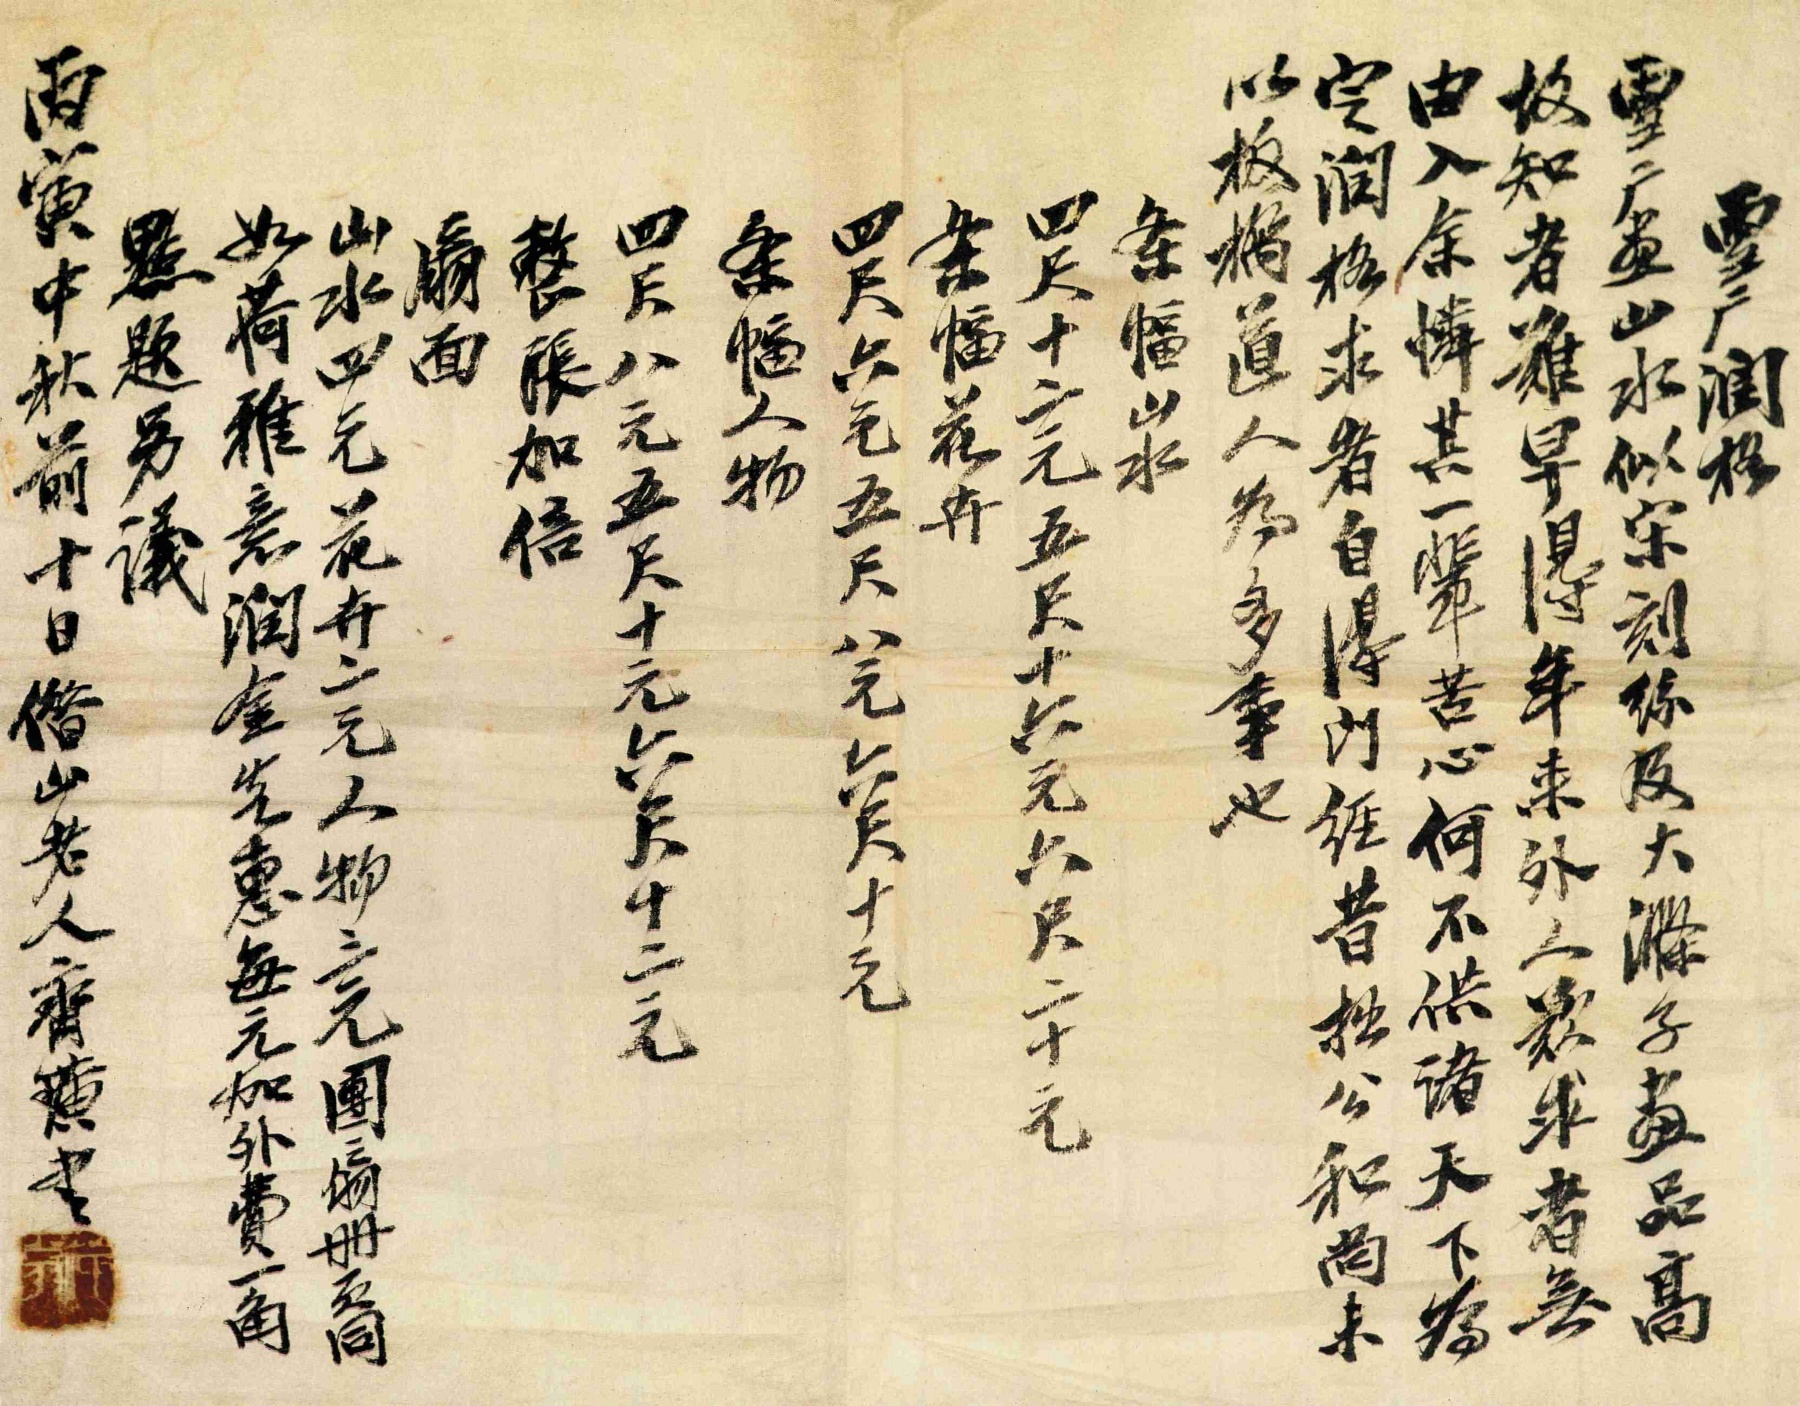 雪厂润格
雪厂画山水似宋刻絲及大滌子畫品高
故知者難早得年来外人眾求者無
由入余憐其一輩苦心何不供諸天下為
定润格求者自得门徑昔拙公和尚未
以板橋道人為多事也
条幅山水
四尺十二元五尺十六元六尺二十元
条幅花卉
四尺六元五尺八元六尺十元
条幅人物
四尺八元五尺十元六尺十二元
整張加倍
扇面
山水四元花卉二元人物三元團扇册页同
如荷雅意润金先惠每元加外費一角
點題另議
丙寅中秋前十日借山老人齊璜書